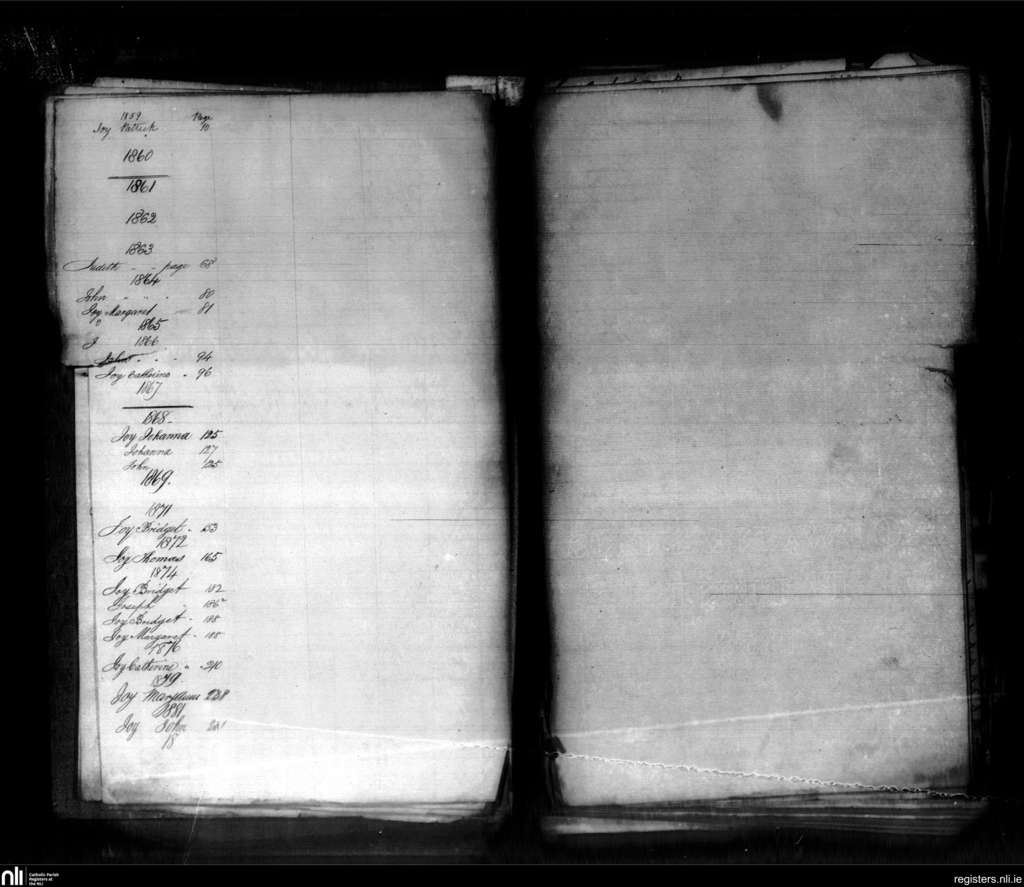 1859 Page
Joy Patrick 10
1860
1861
1862
1863
Judith - - page 68
1864
John " " . 80
Joy Margaret 81
1865
J 1866
John - . - 94
Joy Catherine - 96
1867
1868-
Joy Johanna 125
Johanna 127
John 125
1869.
1871
Joy Bridget - 153
1872
Joy Thomas 165
1874
Joy Bridget 182
Joseph 186
Joy Bridget - 188
Joy Margaret - 188
1876
Joy Catherine " - 240
1879
Joy
1881
Joy John
18
nli
Catholic Parish
Registers at
the NLI
registers.nli.ie